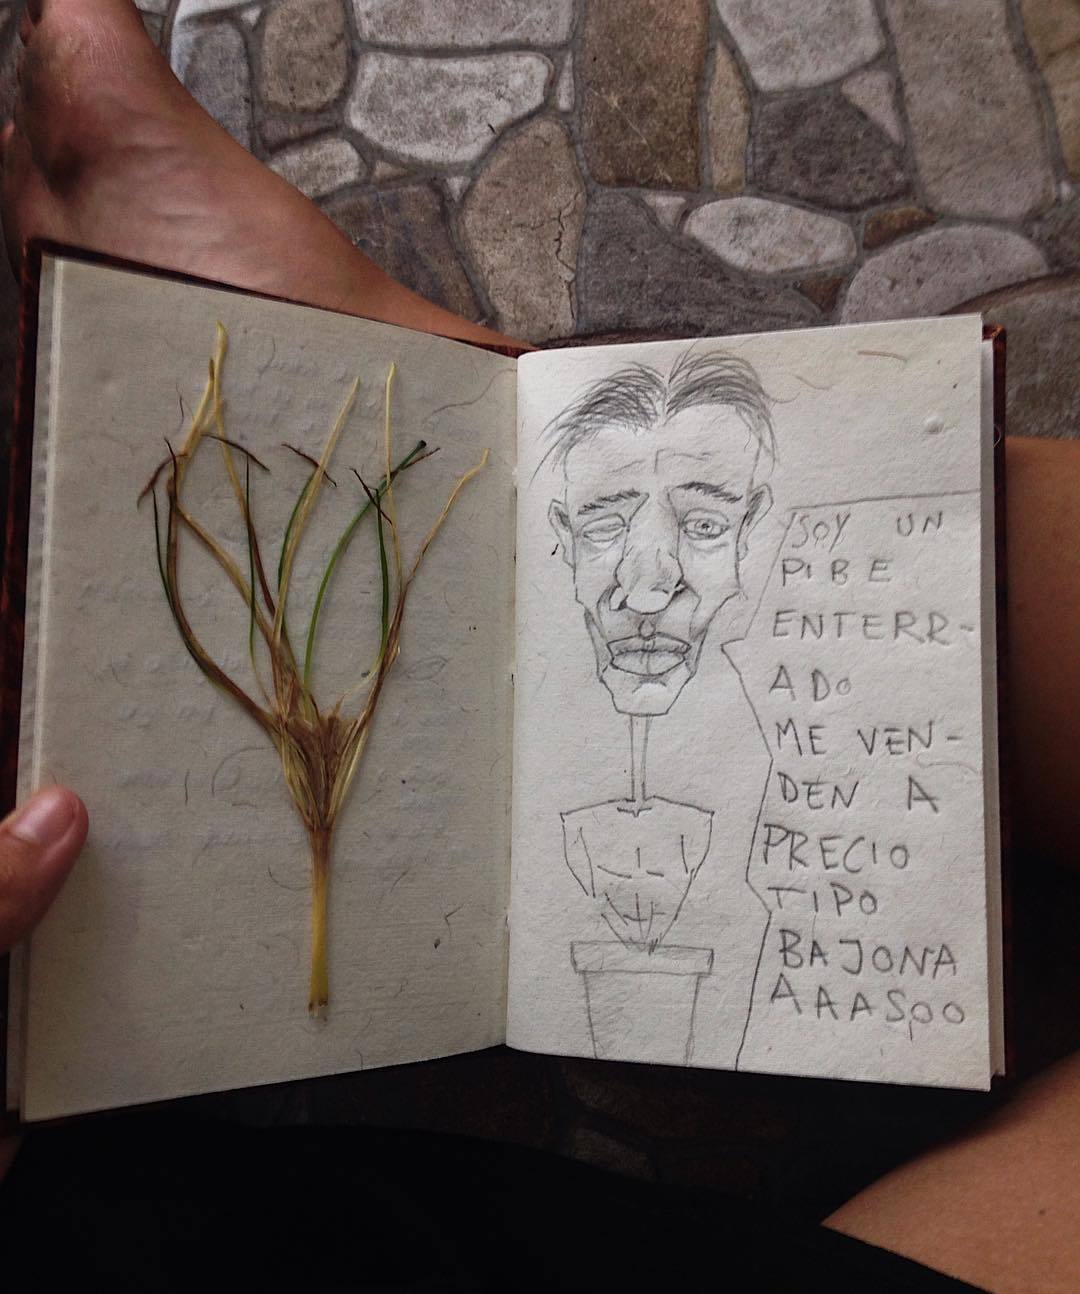 SOY UN
PIBE
ENTERR-
ADO
ME VEN-
DEN A
PRECIO
TIPO
BAJONA
AAASOO